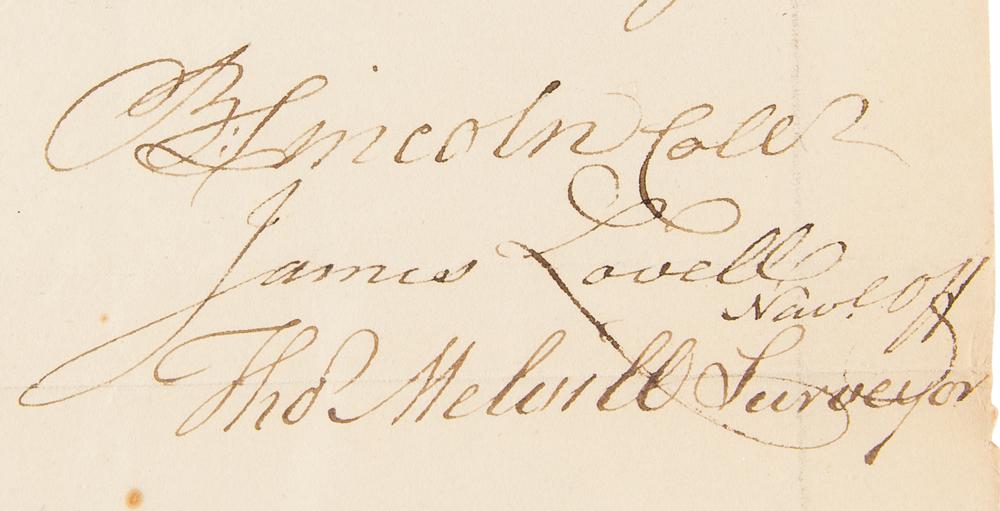 B: Lincoln Collr
James Lovell
Navl. Off
Thos Melvill Surveyor